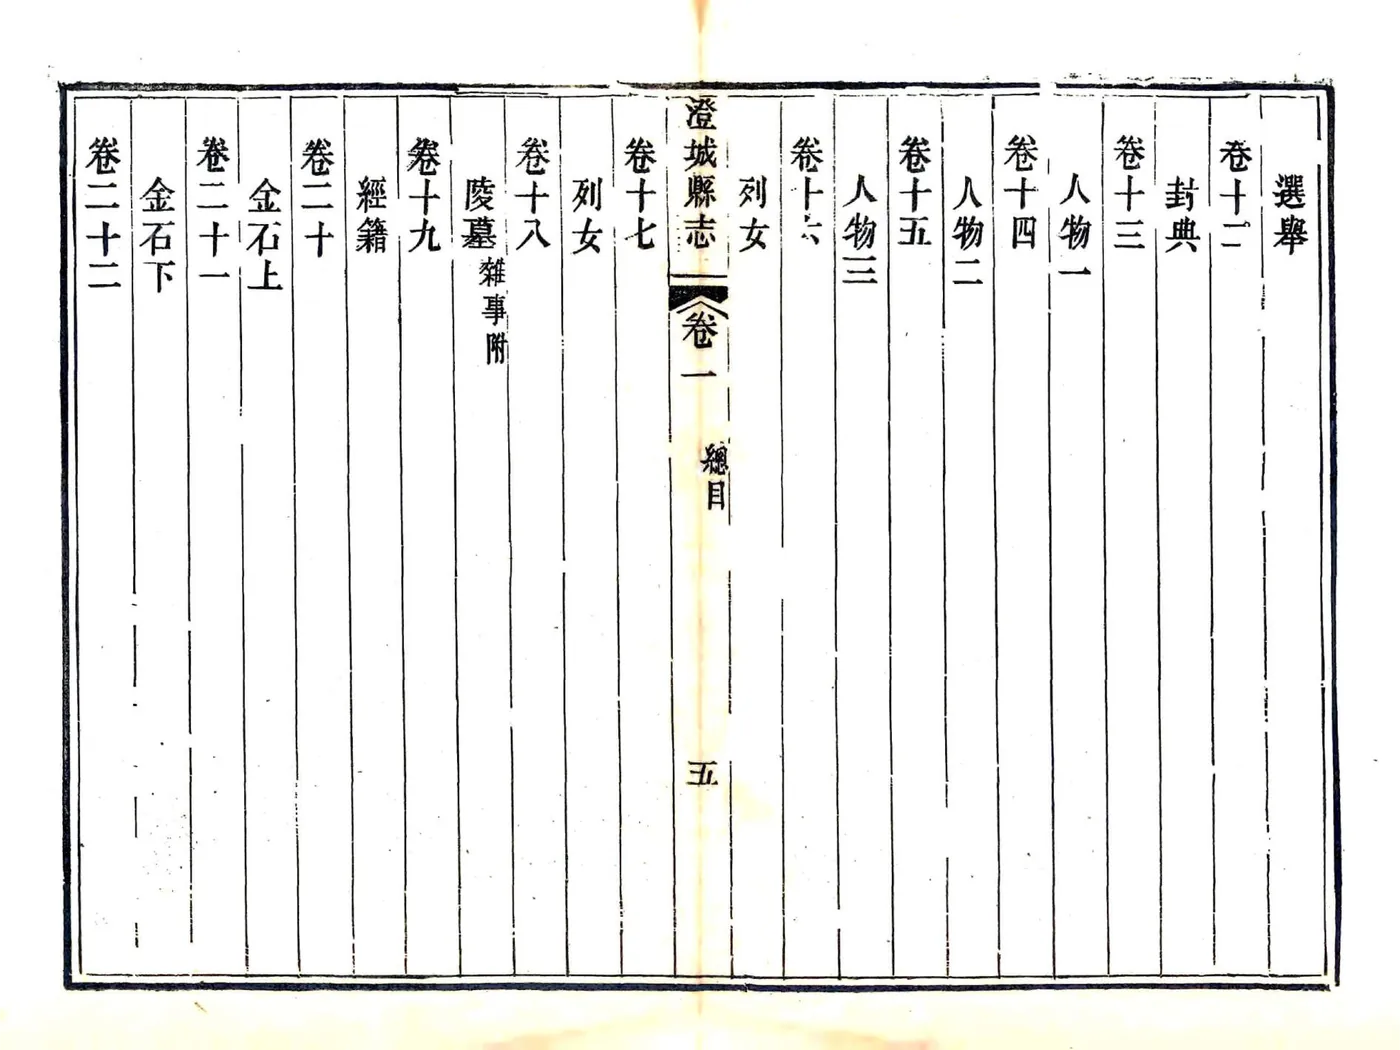 選舉
卷十二
封典
卷十三
人物一
卷十四
人物二
卷十五
人物三
卷十六
列女
澄城縣志 卷一 總目 五
卷十七
列女
卷十八
陵墓雜事附
卷十九
經籍
卷二十
金石上
卷二十一
金石下
卷二十二